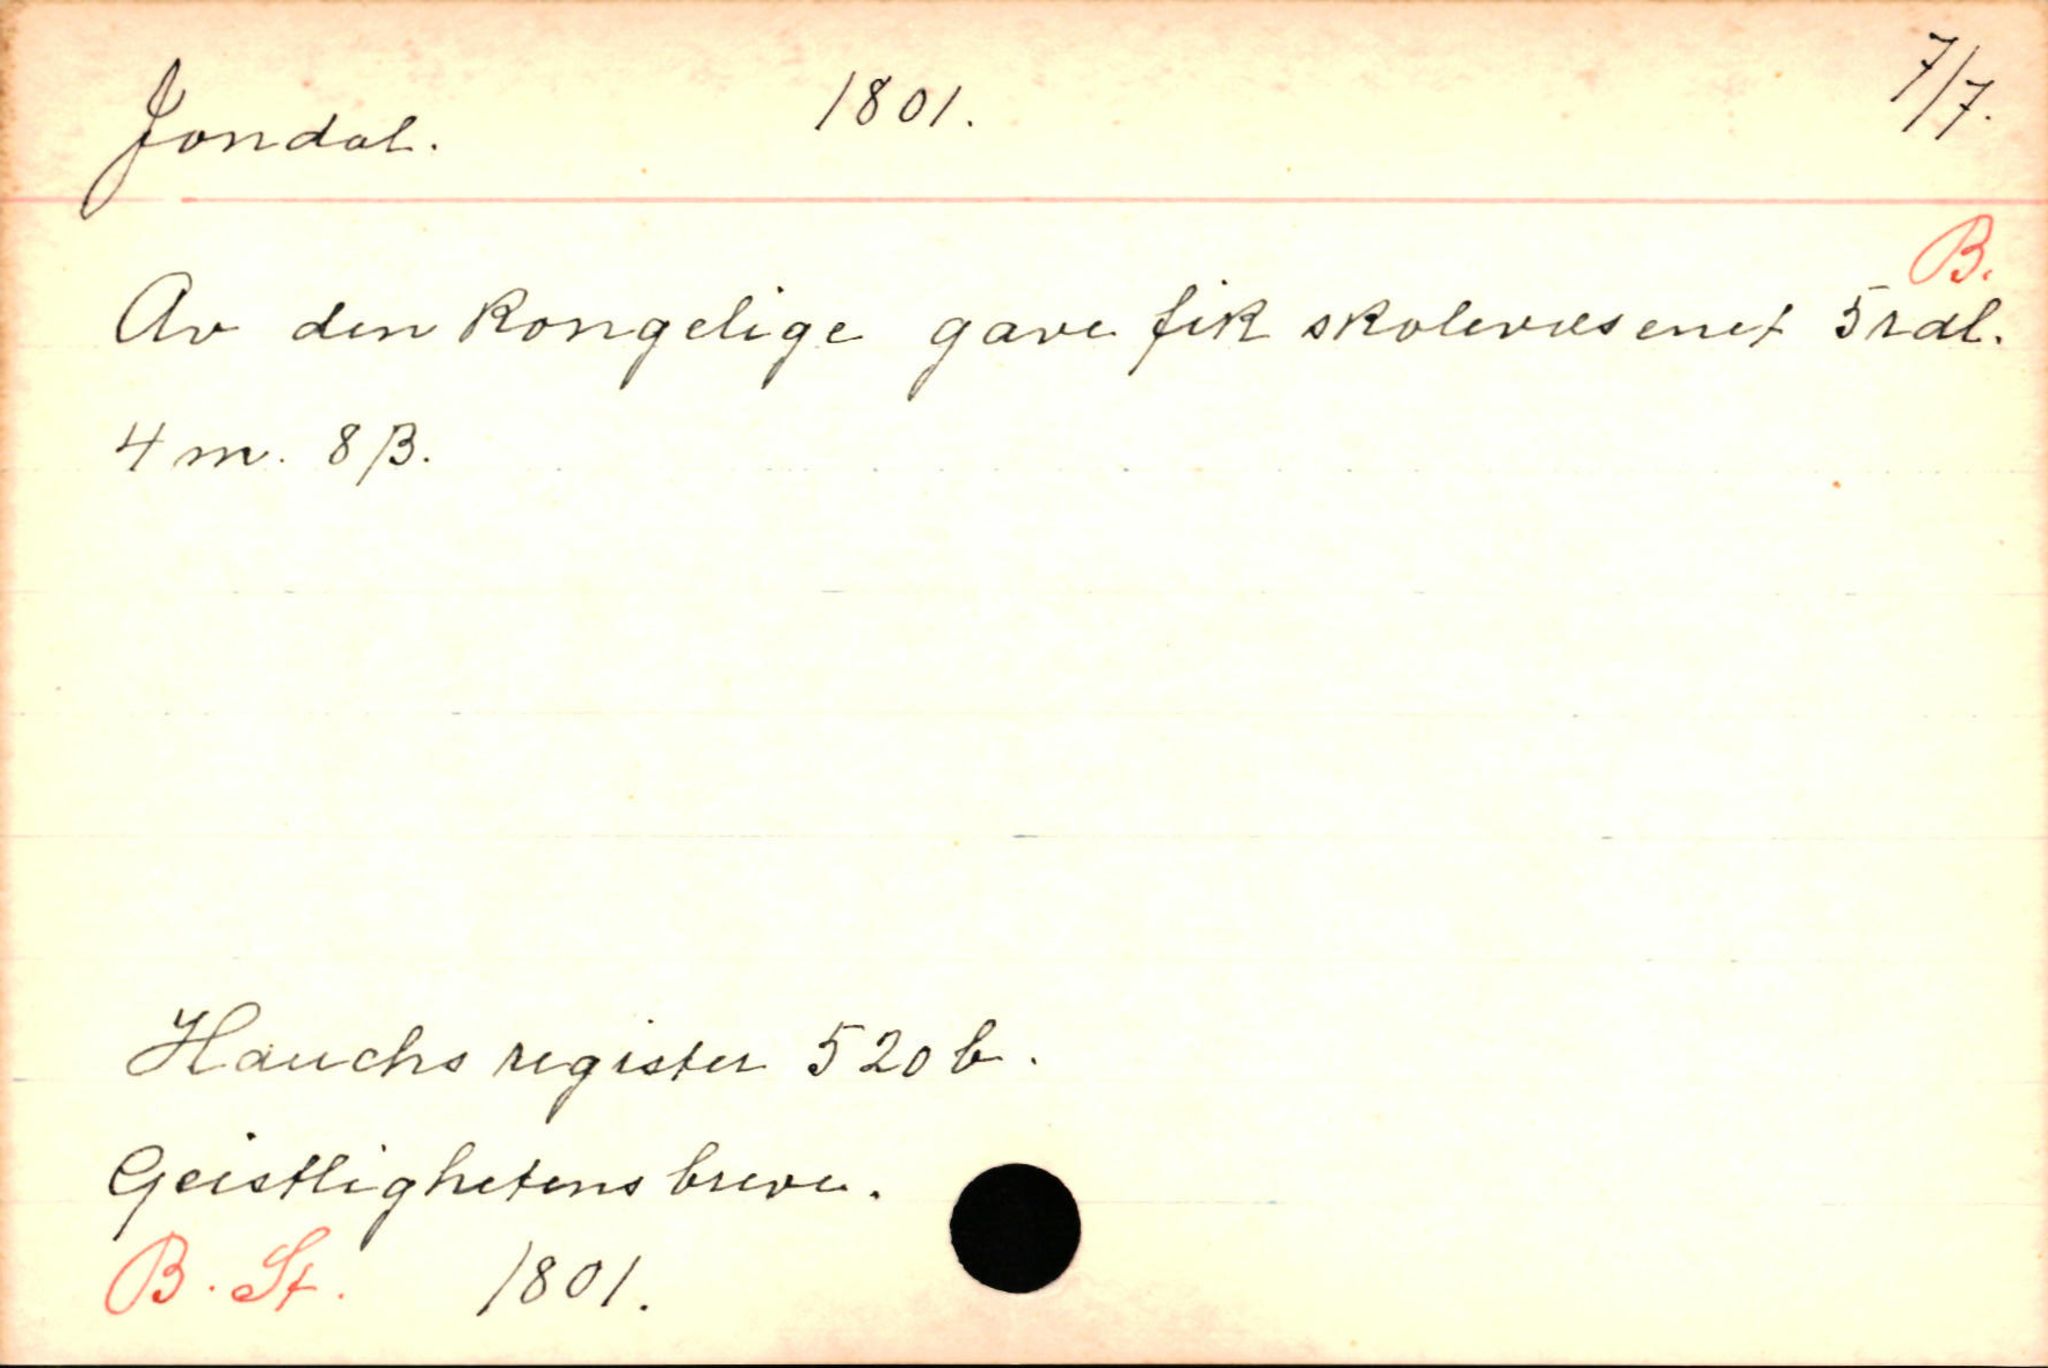 Jondal. 1801. 7/7.
B.
Av den kongelige gave fik skolevæsenet 5 rdl.
4 m. 8 β.
Hauchs register 520 b.
Geistlighetens breve.
B. St. 1801.